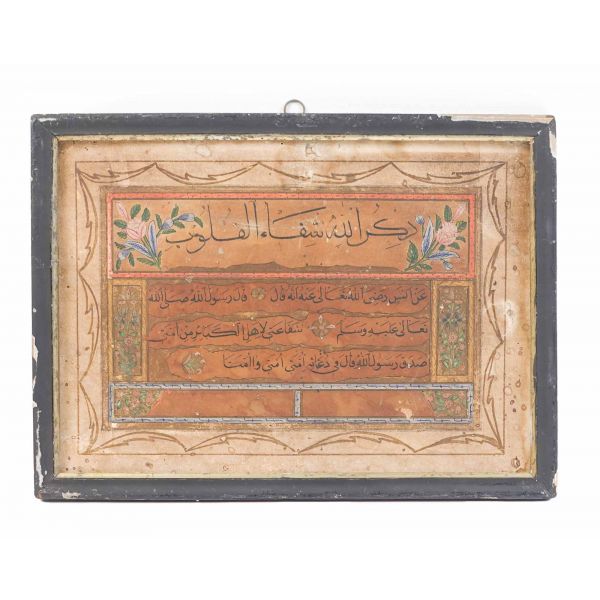 ذكر الله شفاء القلوب
عن انس رضى الله تعالى عنه انه قال قال رسول الله صلى الله
تعالى عليه وسلم شفاعتى لاهل الكبائر من امتى
صدق رسول الله قال و امتى امتى